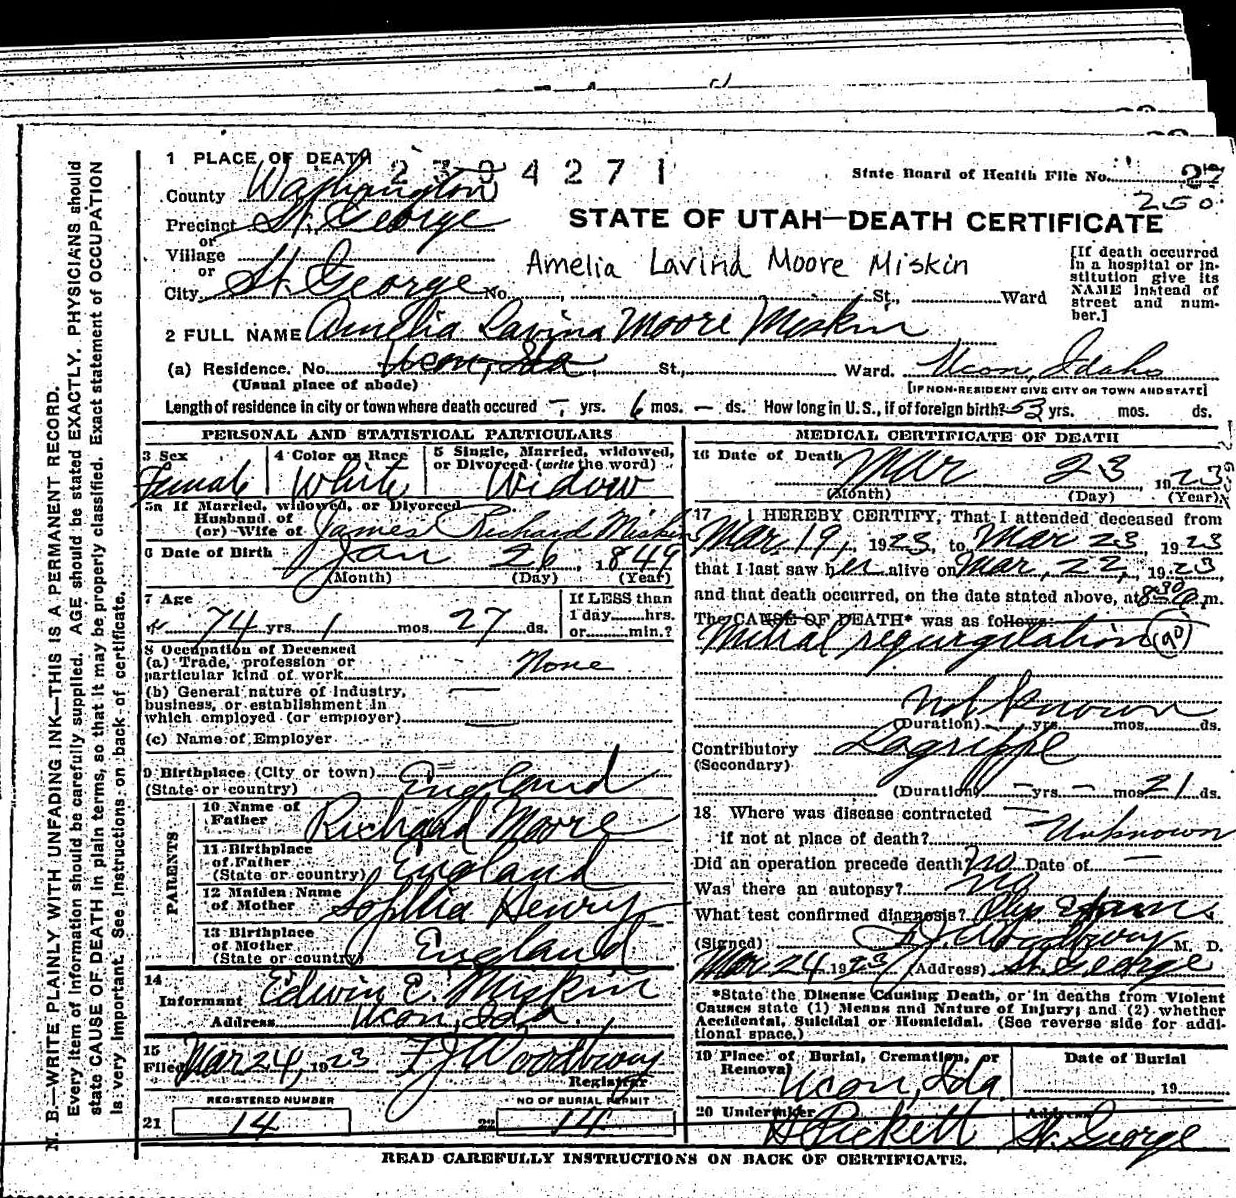 1 PLACE OF DEATH 2394271
State Board of Health File No. 27
250
County Washington
STATE OF UTAH—DEATH CERTIFICATE
Precinct St. George
or
Village
or
City St. George No. St., Ward
Amelia Lavind Moore Miskin
[If death occurred
in a hospital or in-
stitution give its
NAME instead of
street and num-
ber.]
2 FULL NAME Amelia Lavina Moore Miskin
(a) Residence. No. Ucon, Ida St., Ward. Ucon, Idaho
(Usual place of abode) [IF NON-RESIDENT GIVE CITY OR TOWN AND STATE]
Length of residence in city or town where death occured — yrs. 6 mos. — ds. How long in U.S., if of foreign birth? 53 yrs. mos. ds.
PERSONAL AND STATISTICAL PARTICULARS
3 Sex
Female
4 Color or Race
White
5 Single, Married, widowed,
or Divorced (write the word)
Widow
5a If Married, widowed, or Divorced
Husband of
(or) Wife of James Richard Miskin
6 Date of Birth Jan 26, 1849
(Month) (Day) (Year)
7 Age
74 yrs. 1 mos. 27 ds.
If LESS than
1 day hrs.
or min.?
8 Occupation of Deceased
(a) Trade, profession or
particular kind of work None
(b) General nature of Industry,
business, or establishment in
which employed (or employer)
(c) Name of Employer
9 Birthplace (City or town)
(State or country) England
PARENTS
10 Name of
Father Richard Moore
11 Birthplace
of Father
(State or country) England
12 Maiden Name
of Mother Sophia Henry
13 Birthplace
of Mother
(State or country) England
14
Informant Edwin E. Miskin
Address Ucon, Ida.
15
Filed Mar 24, 1923 F J Woodbury
Registrar
REGISTERED NUMBER
21 14
NO OF BURIAL PERMIT
22 14
MEDICAL CERTIFICATE OF DEATH
16 Date of Death Mar 23, 1923
(Month) (Day) (Year)
17 I HEREBY CERTIFY, That I attended deceased from
Mar. 19, 1923, to Mar 23 1923
that I last saw her alive on Mar, 22, 1923,
and that death occurred, on the date stated above, at 8:30 a m.
The CAUSE OF DEATH* was as follows:
Mitral regurgitation (90)
not known
(Duration) yrs. mos. ds.
Contributory Lagrippe
(Secondary)
(Duration) — yrs. — mos. 21 ds.
18. Where was disease contracted
if not at place of death? Unknown
Did an operation precede death? no Date of —
Was there an autopsy? No
What test confirmed diagnosis? Phys Exam
(Signed) F. J. Woodbury M. D.
Mar 24 1923 (Address) St. George
*State the Disease Causing Death, or in deaths from Violent
Causes state (1) Means and Nature of Injury; and (2) whether
Accidental, Suicidal or Homicidal. (See reverse side for addi-
tional space.)
19 Place of Burial, Cremation, or
Removal Ucon, Ida
Date of Burial
19
20 Undertaker Pickett
Address St. George
READ CAREFULLY INSTRUCTIONS ON BACK OF CERTIFICATE.
N. B.—WRITE PLAINLY WITH UNFADING INK—THIS IS A PERMANENT RECORD.
Every item of information should be carefully supplied. AGE should be stated EXACTLY. PHYSICIANS should
state CAUSE OF DEATH in plain terms, so that it may be properly classified. Exact statement of OCCUPATION
is very important. See instructions on back of certificate.